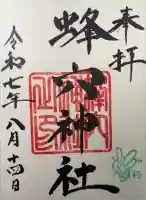 奉拝
蜂穴神社
令和七年八月十四日